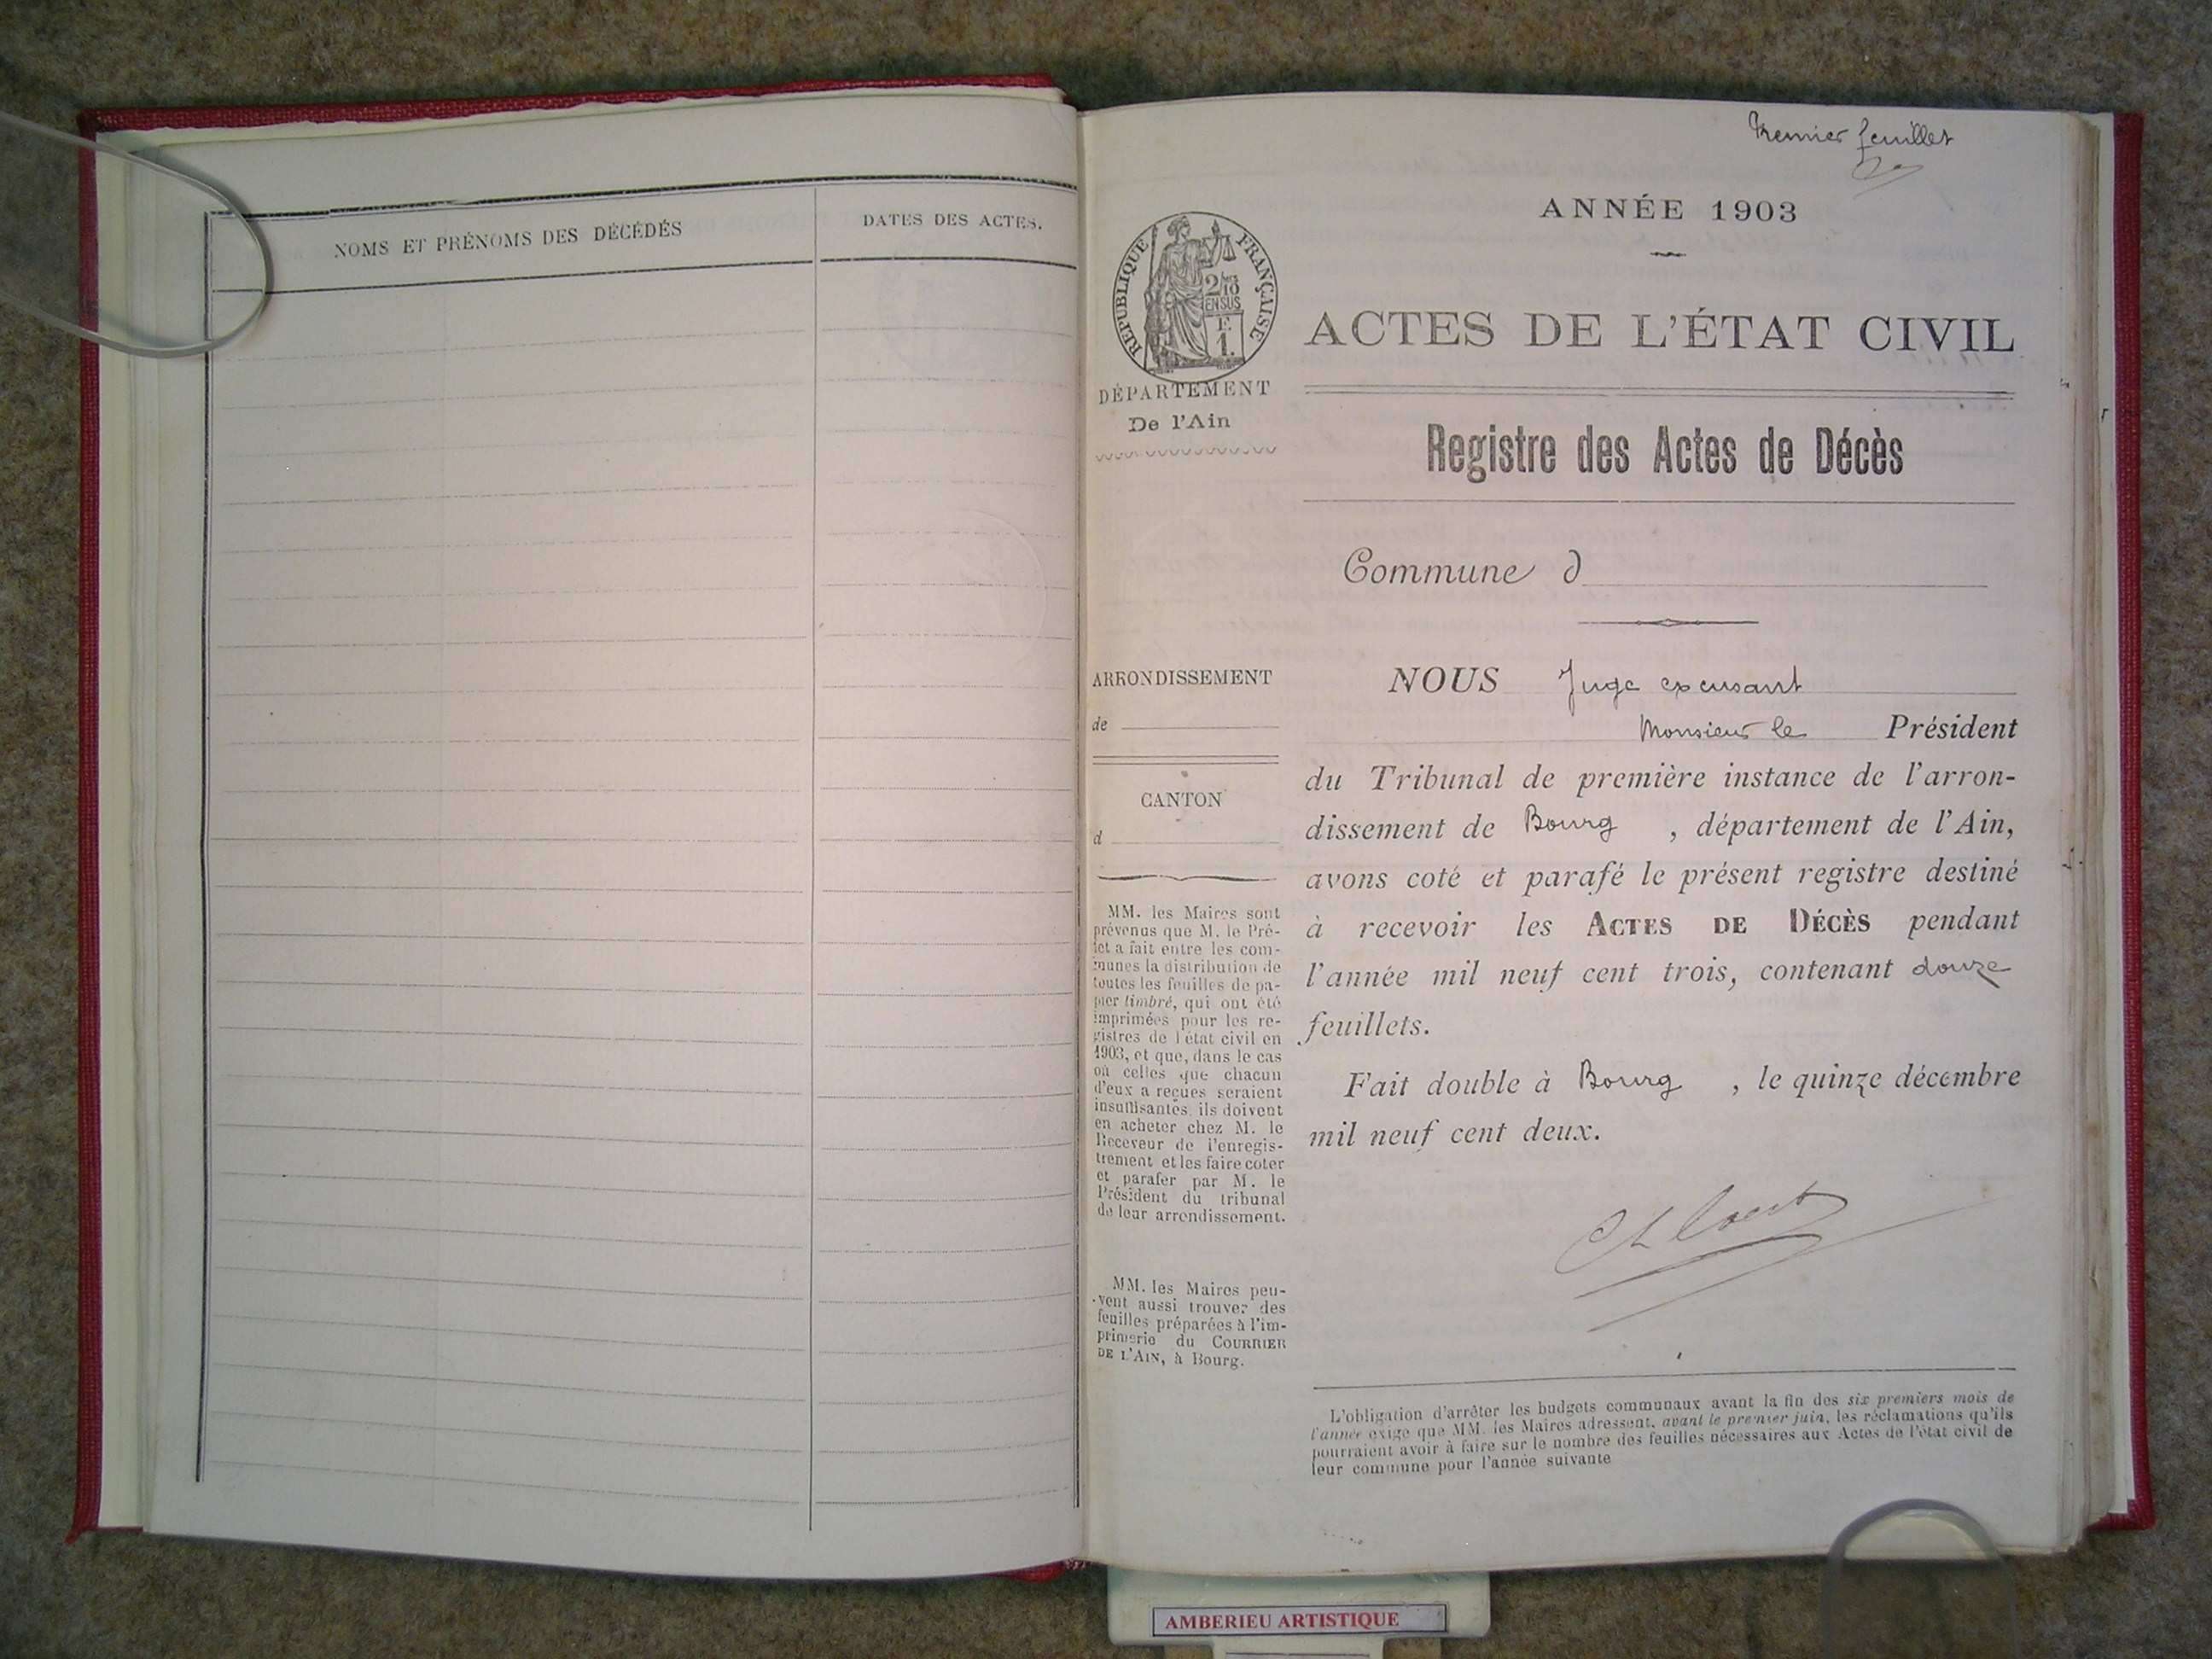 NOMS ET PRÉNOMS DES DÉCÉDÉS
DATES DES ACTES.
Premier feuillet
ANNÉE 1903
RÉPUBLIQUE FRANÇAISE
2/10
EN SUS
F.
1.
DÉPARTEMENT
De l'Ain
ACTES DE L'ÉTAT CIVIL
Registre des Actes de Décès
Commune d
ARRONDISSEMENT
de
CANTON
d
MM. les Maires sont
prévenus que M. le Pré-
fet a fait entre les com-
munes la distribution de
toutes les feuilles de pa-
pier timbré, qui ont été
imprimées pour les re-
gistres de l'état civil en
1903, et que, dans le cas
où celles que chacun
d'eux a reçues seraient
insuffisantes, ils doivent
en acheter chez M. le
Receveur de l'enregis-
trement et les faire coter
et parafer par M. le
Président du tribunal
de leur arrondissement.
MM. les Maires peu-
vent aussi trouver des
feuilles préparées à l'im-
primerie du COURRIER
DE L'AIN, à Bourg.
NOUS Juge excusant
Monsieur le Président
du Tribunal de première instance de l'arron-
dissement de Bourg , département de l'Ain,
avons coté et parafé le présent registre destiné
à recevoir les ACTES DE DÉCÈS pendant
l'année mil neuf cent trois, contenant douze
feuillets.
Fait double à Bourg , le quinze décembre
mil neuf cent deux.
L'obligation d'arrêter les budgets communaux avant la fin des six premiers mois de
l'année exige que MM. les Maires adressent, avant le premier juin, les réclamations qu'ils
pourraient avoir à faire sur le nombre des feuilles nécessaires aux Actes de l'état civil de
leur commune pour l'année suivante
AMBERIEU ARTISTIQUE